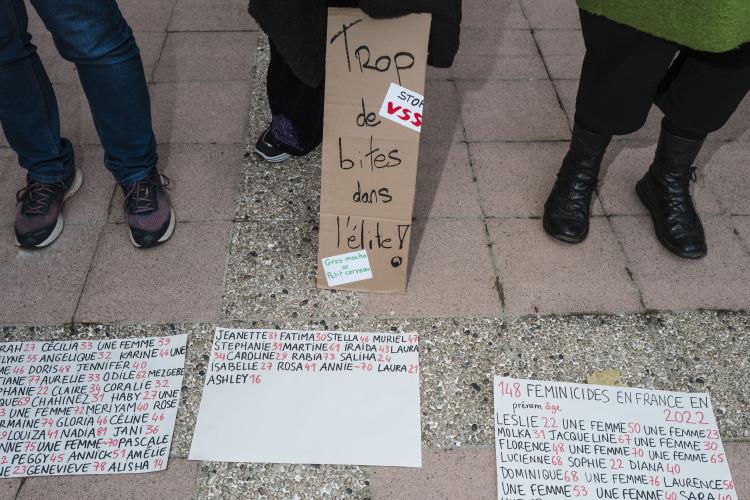 Trop
STOP
VSS
de
bites
dans
l'élite !
Gros macho
=
Petit cerveau
27 CÉCILIA 33 UNE FEMME 39
55 ANGELIQUE 32 KARINE 46 UNE
46 DORIS 48 JENNIFER 40
77 AURELIE 33 ODILE 62
22 CLAIRE 34 CORALIE 32
69 CHAHINEZ 31 HABY 27 UNE
UNE FEMME 72 MERIYAM 40 ROSE
74 GLORIA 46 CÉLINE 46
LOUIZA 41 NADIA 81 JANI 36
75 UNE FEMME ~70 PASCALE
PEGGY 45 ANNICK 51 AMÉLIE
23 GENEVIEVE 78 ALISHA 14
JEANETTE 87 FATIMA 30 STELLA 46 MURIEL 47
STEPHANIE 31 MARTINE 61 IRAIDA 43 LAURA
34 CAROLINE 29 RABIA 73 SALIHA 24
ISABELLE 27 ROSA 41 ANNIE ~70 LAURA 21
ASHLEY 16
148 FEMINICIDES EN FRANCE EN
prénom âge 2022
LESLIE 22 UNE FEMME 50 UNE FEMME 23
MOLKA 31 JACQUELINE 67 UNE FEMME 30
FLORENCE 48 UNE FEMME 70 UNE FEMME 65
LUCIENNE 68 SOPHIE 22 DIANA 40
DOMINIQUE 68 UNE FEMME 76 LAURENCE 56
UNE FEMME 53 UNE FEMME 40 SARA